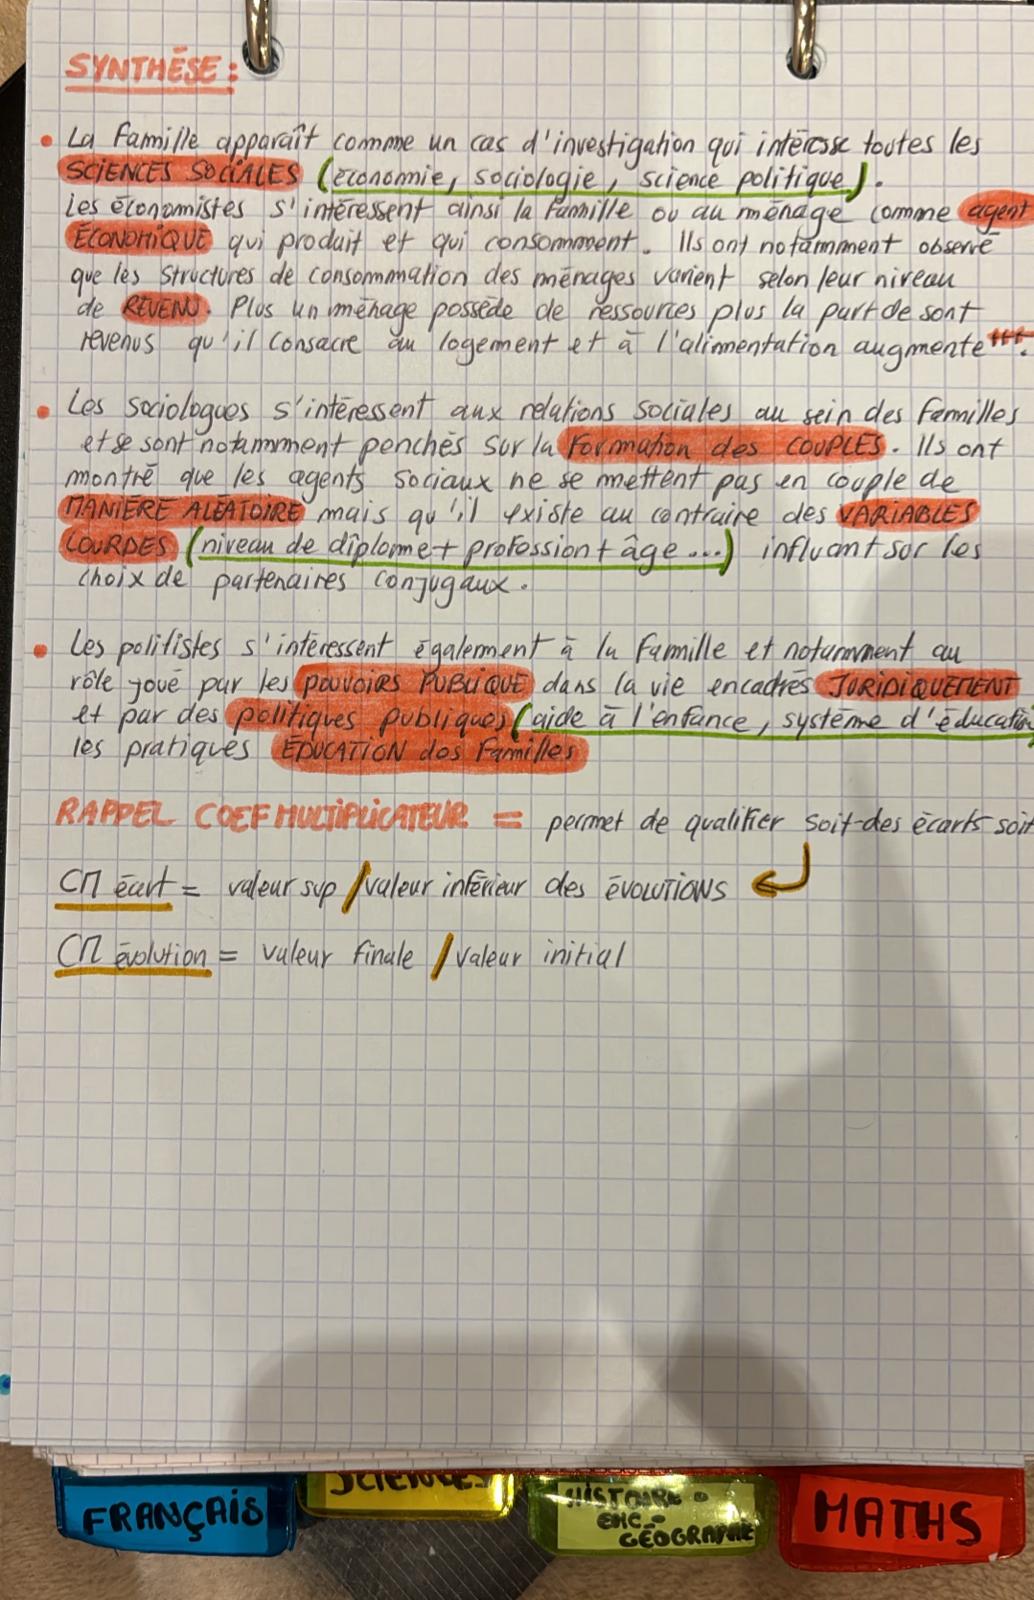 SYNTHÈSE :
• La famille apparaît comme un cas d'investigation qui intéresse toutes les
SCIENCES SOCIALES (économie, sociologie, science politique).
Les économistes s'intéressent ainsi la famille ou au ménage comme agent
ÉCONOMIQUE qui produit et qui consomment. Ils ont notamment observé
que les structures de consommation des ménages varient selon leur niveau
de REVENU. Plus un ménage possède de ressources plus la part de sont
revenus qu'il consacre au logement et à l'alimentation augmente.
• Les sociologues s'intéressent aux relations sociales au sein des familles
et se sont notammment penchés sur la formation des COUPLES. Ils ont
montré que les agents sociaux ne se mettent pas en couple de
MANIÈRE ALÉATOIRE mais qu'il existe au contraire des VARIABLES
LOURDES (niveau de diplome + profession + âge ...) influant sur les
choix de partenaires conjugaux.
• Les politistes s'intéressent également à la famille et notamment au
rôle joué par les pouvoirs PUBLIQUE dans la vie encadrés JURIDIQUEMENT
et par des politiques publiques (aide à l'enfance, système d'éducation)
les pratiques ÉDUCATION des familles
RAPPEL COEF MULTIPLICATEUR = permet de qualifier soit des écarts soit
CM écart = valeur sup / valeur inférieur des ÉVOLUTIONS
CM évolution = valeur finale / valeur initial
FRANÇAIS
SCIENCES
HISTOIRE -
EMC -
GÉOGRAPHIE
MATHS